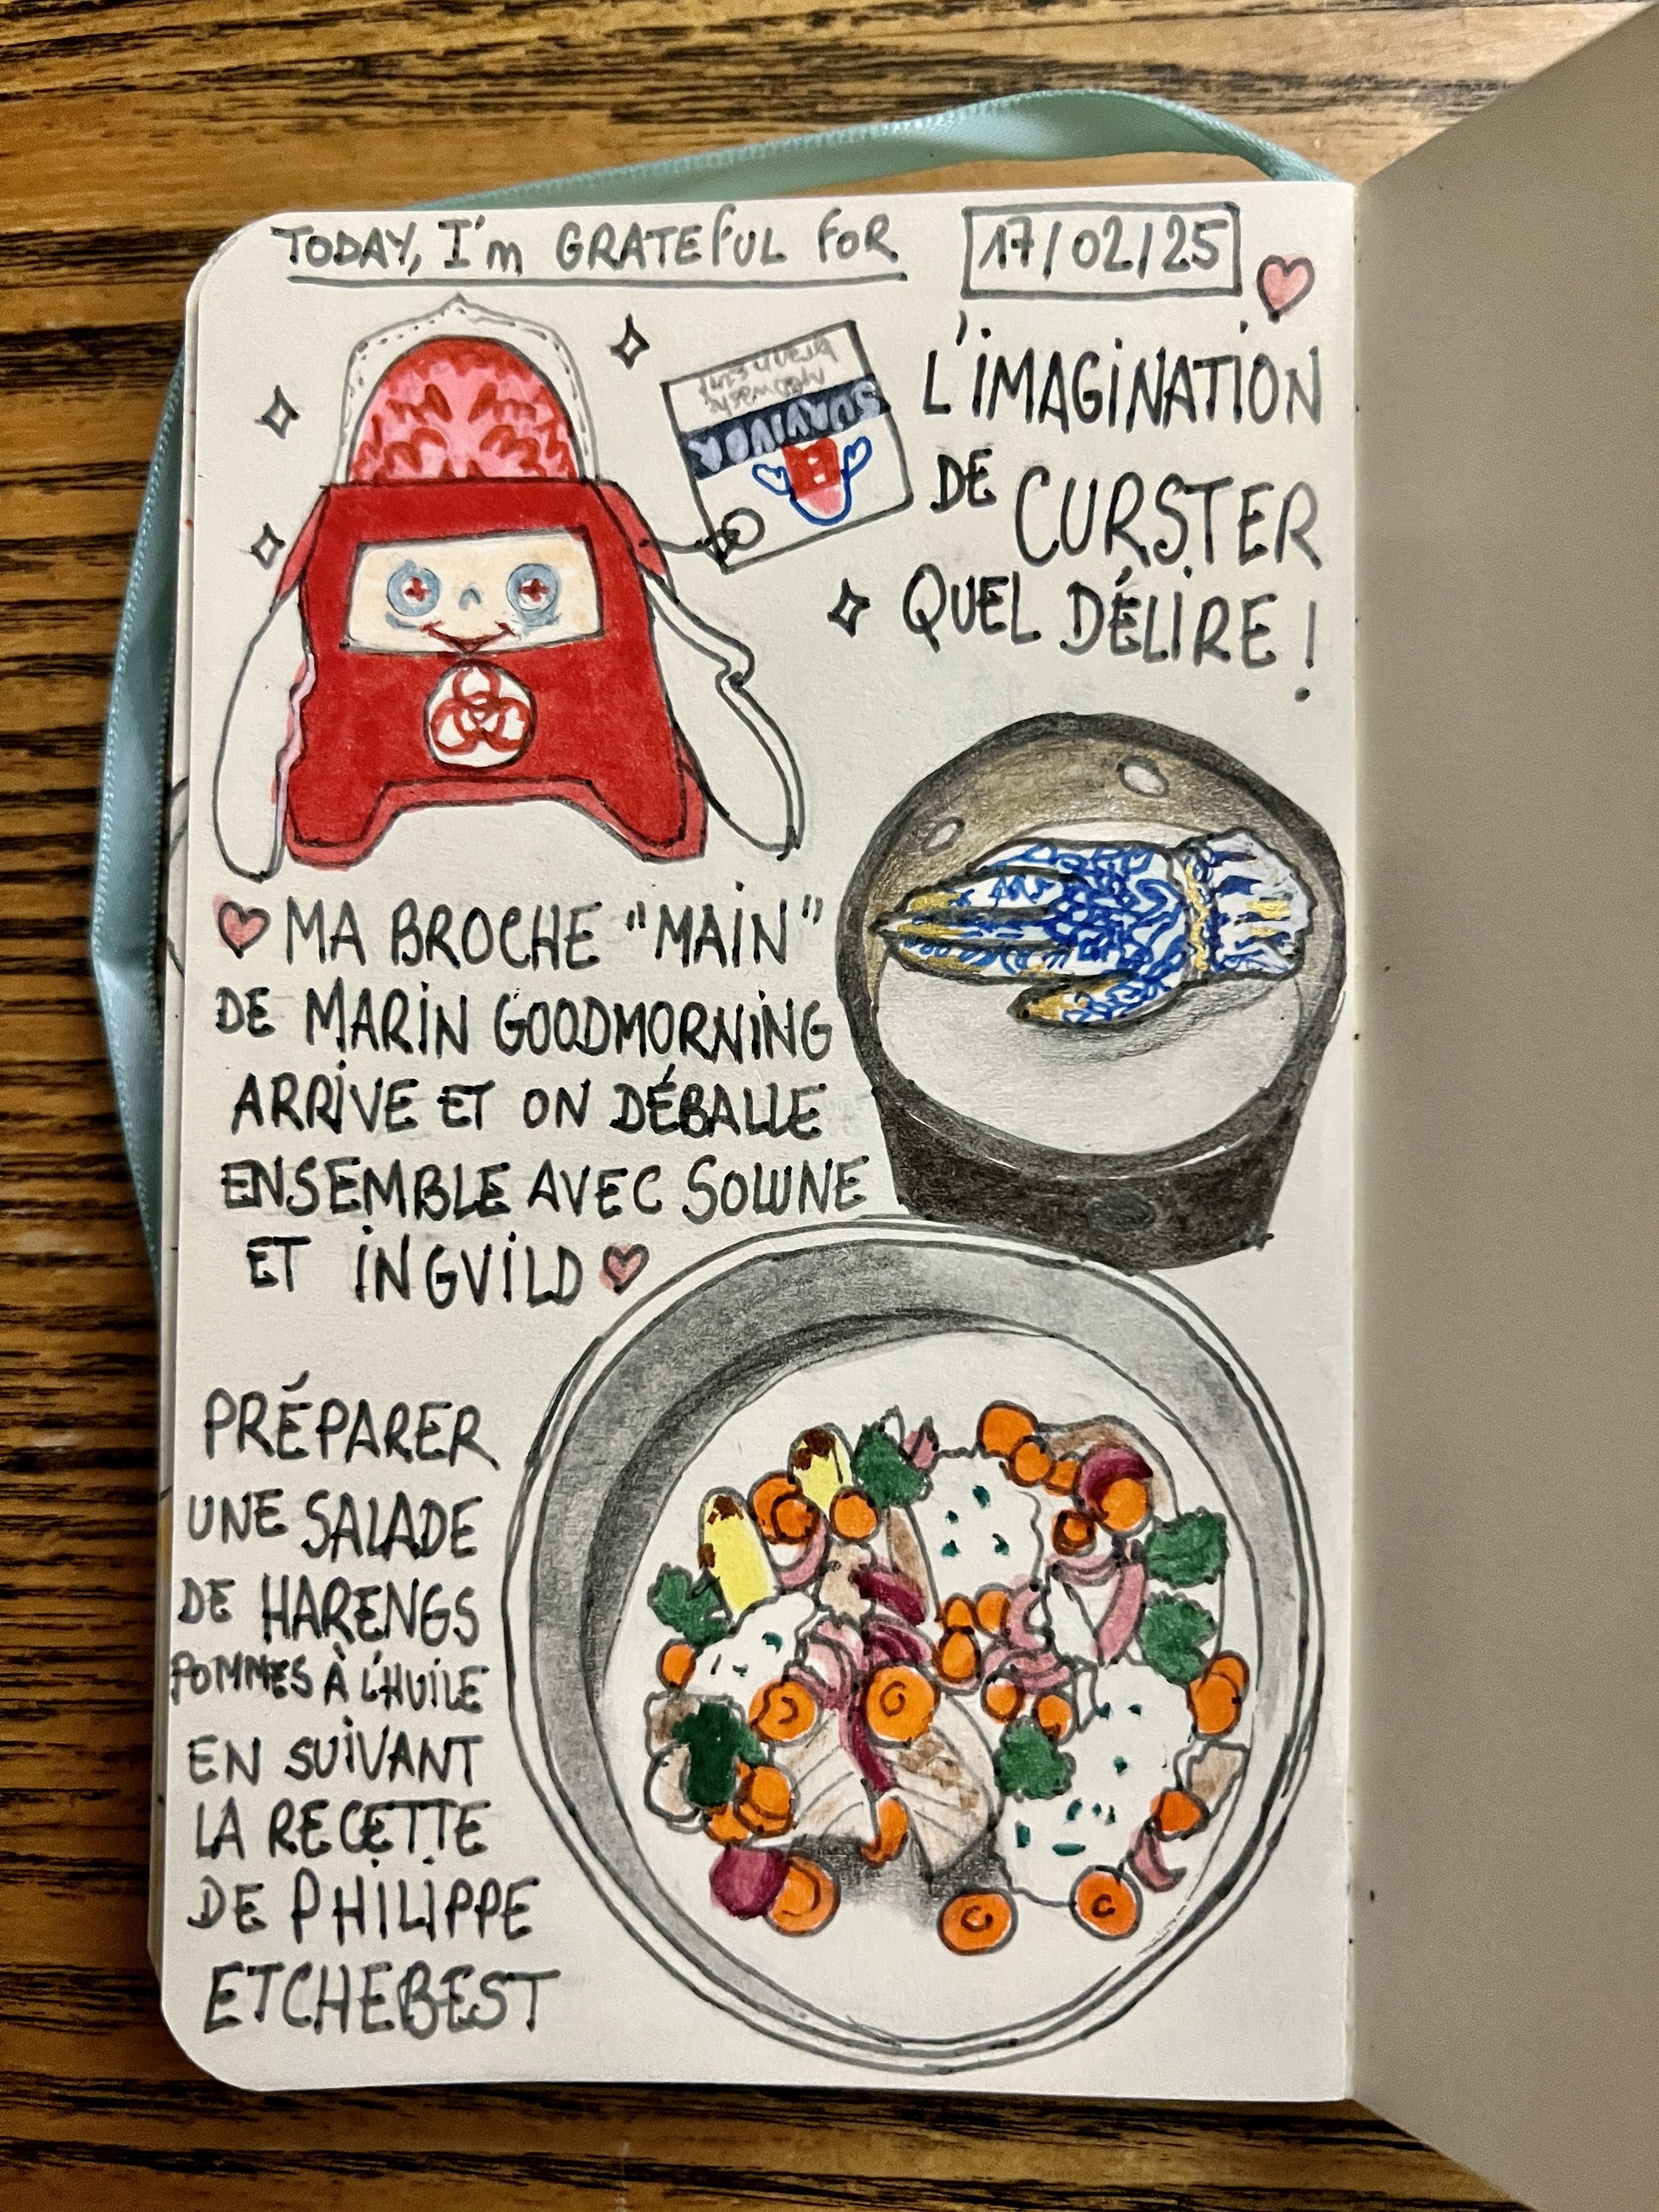 TODAY, I'm GRATEFUL FOR
17/02/25
L'IMAGINATION
DE CURSTER
QUEL DÉLIRE !
SURVIVOR
MA BROCHE "MAIN"
DE MARIN GOODMORNING
ARRIVE ET ON DÉBALLE
ENSEMBLE AVEC SOLUNE
ET INGVILD
PRÉPARER
UNE SALADE
DE HARENGS
POMMES À L'HUILE
EN SUIVANT
LA RECETTE
DE PHILIPPE
ETCHEBEST